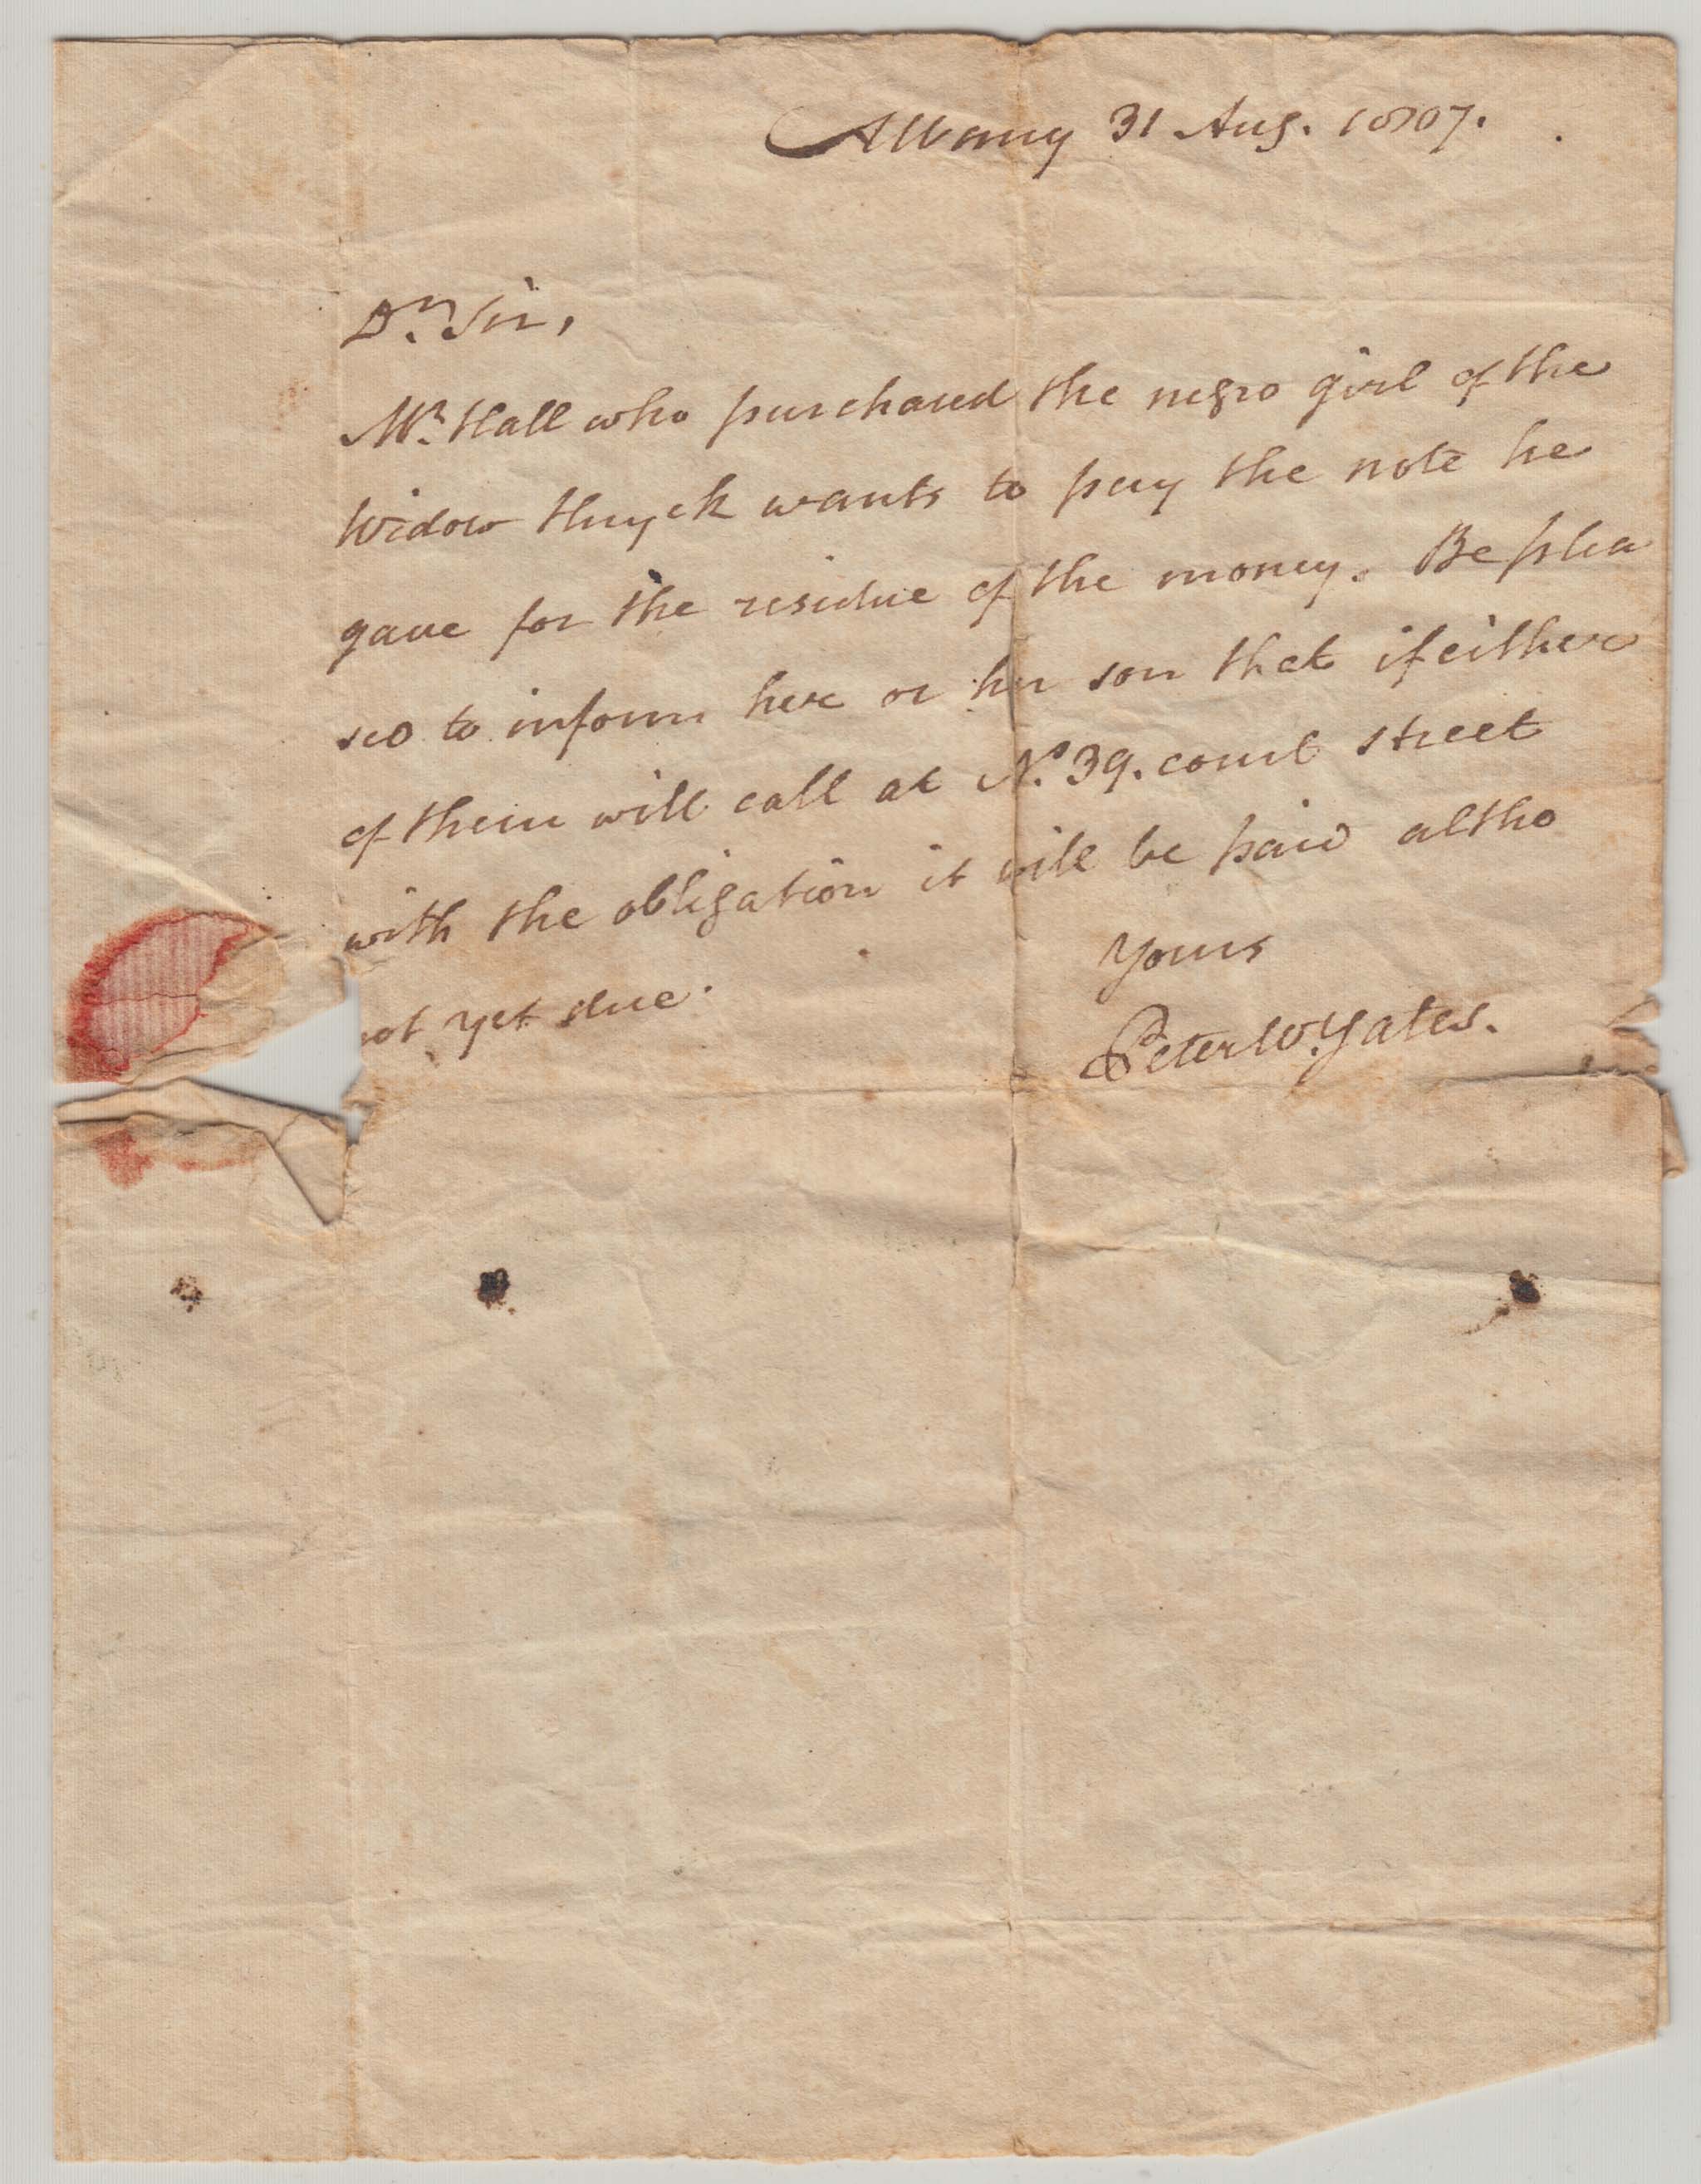 Albany 31 Aug. 1807.
Dr. Sir,
Mr. Hall who purchased the negro girl of the
Widow Huyck wants to pay the note he
gave for the residue of the money. Be plea
sed to inform her or her son that if either
of them will call at No. 39. court street
with the obligation it will be paid altho
not yet due.
Yours
Peter W. Yates.